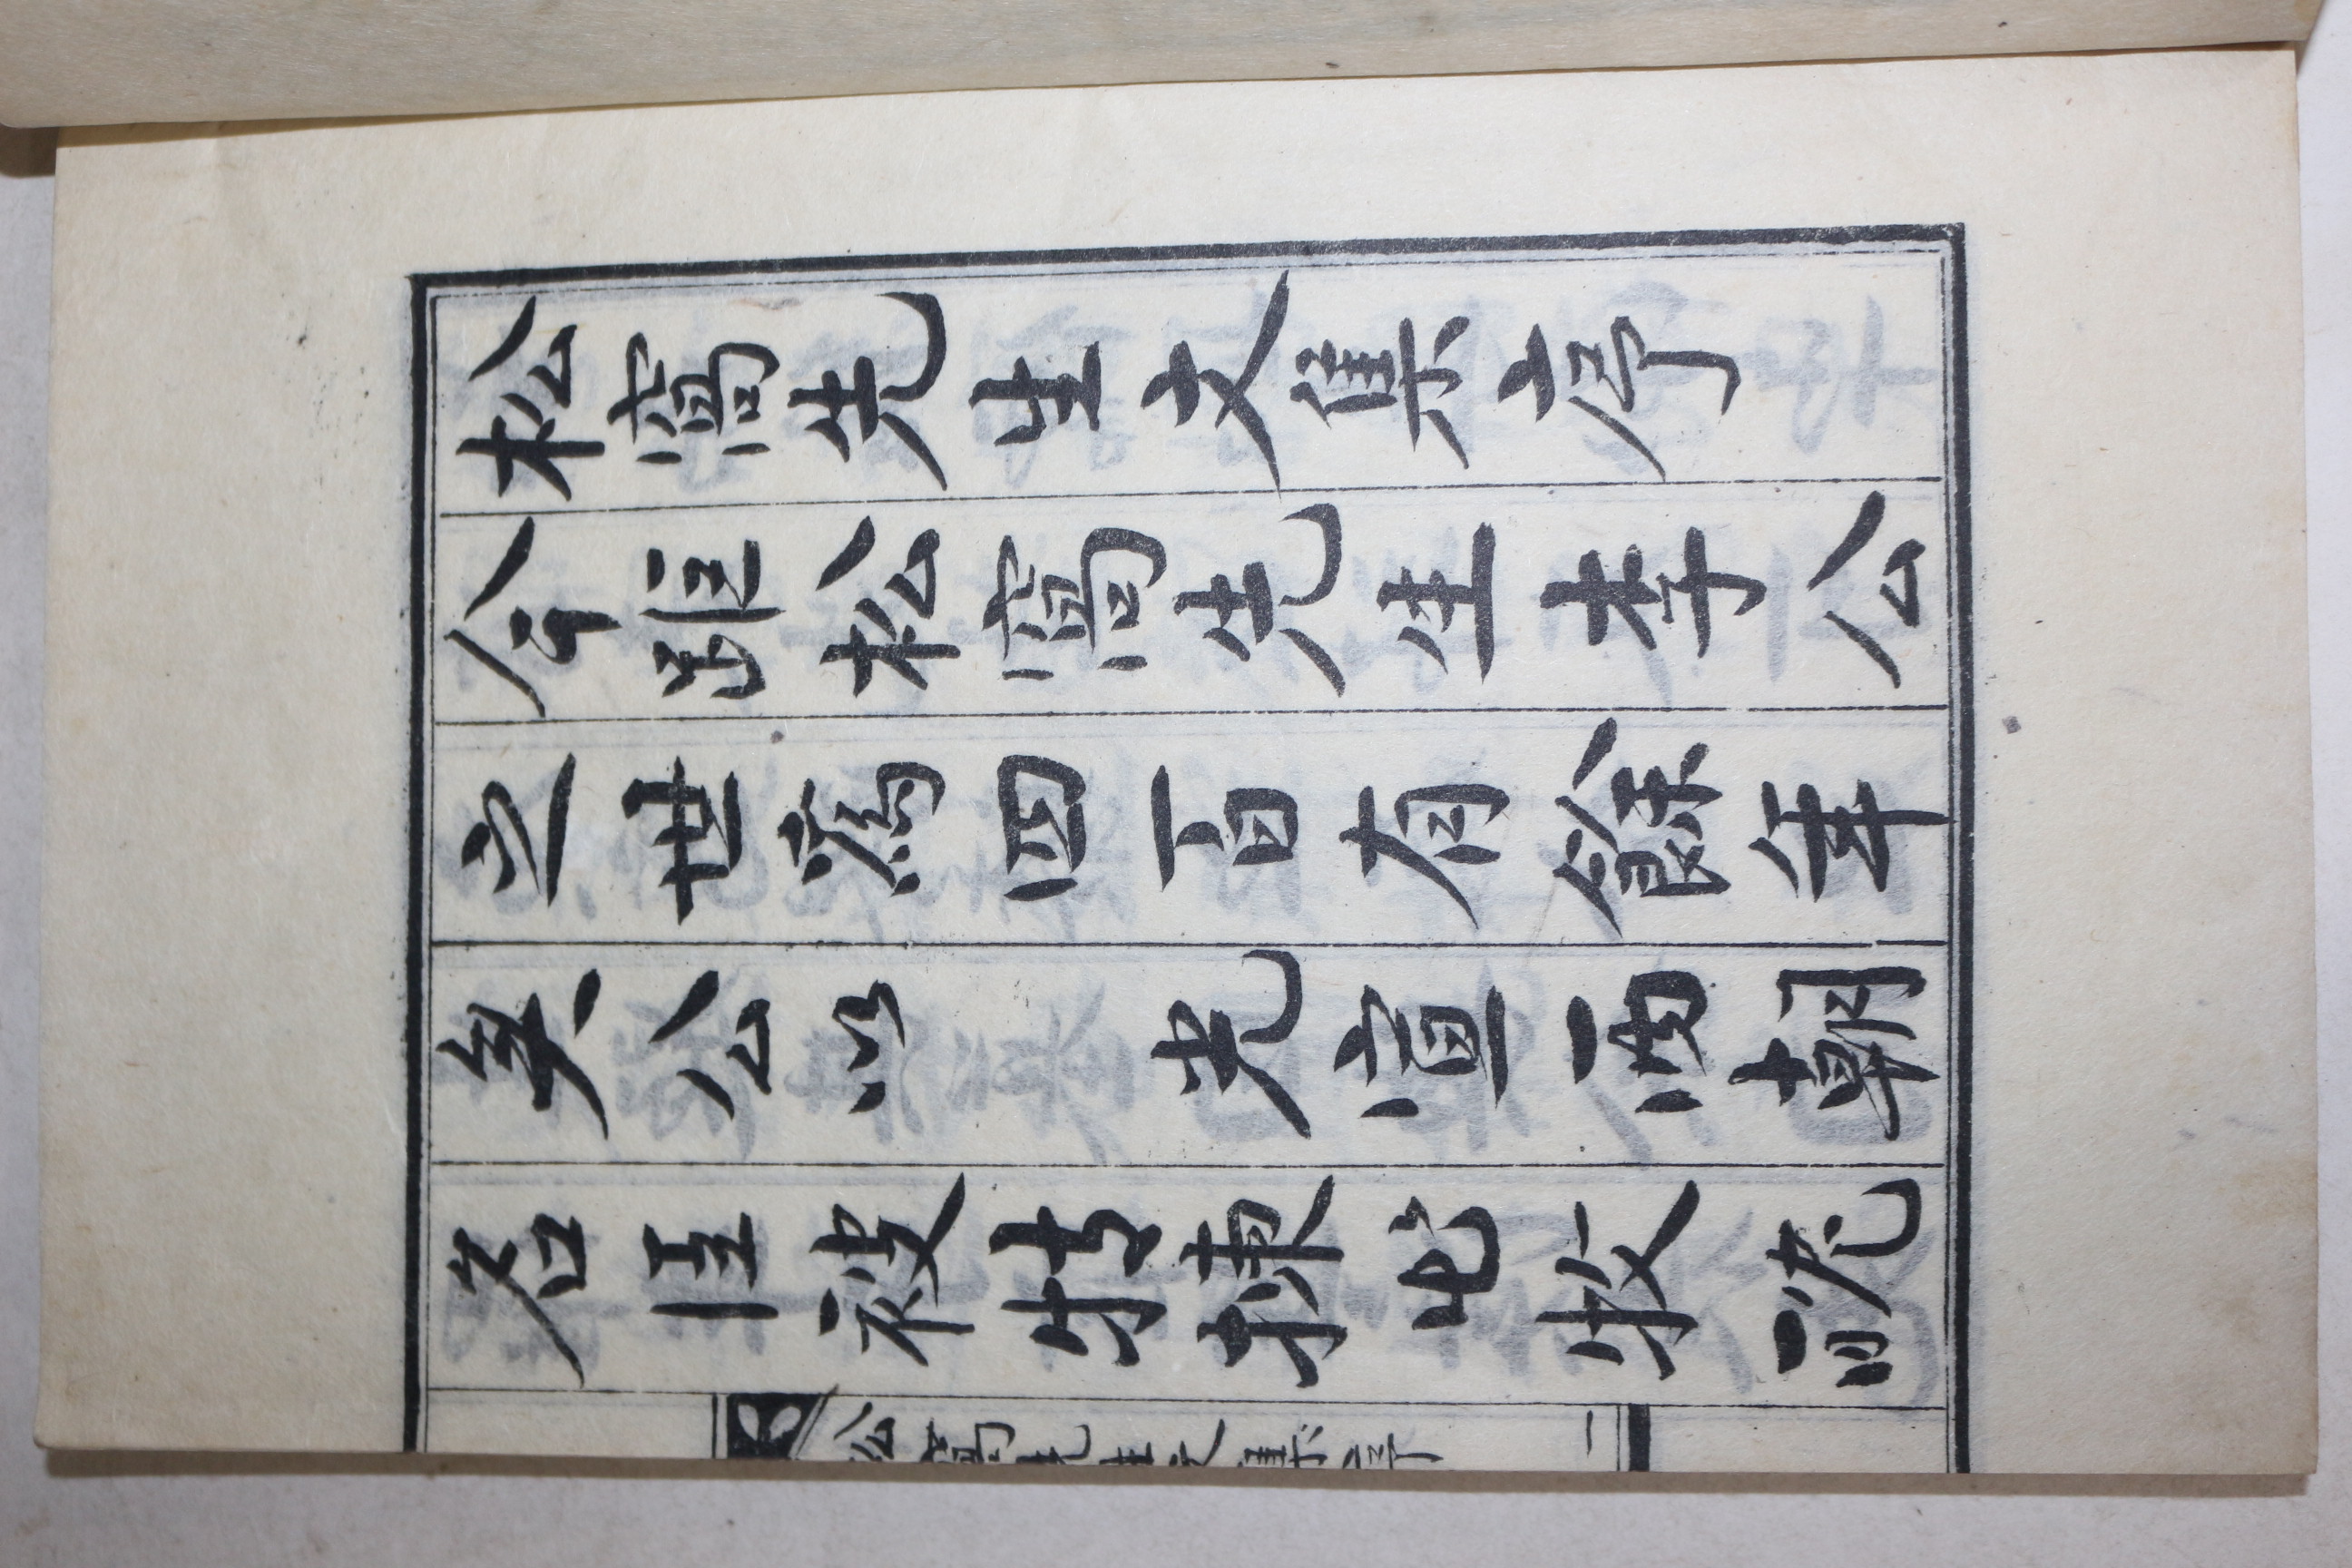 松窩先生文集序
今距松窩先生李公
之世爲四百有餘年
矣公以　光宣兩朝
名臣被特揀出牧耽
松窩先生文集序
一